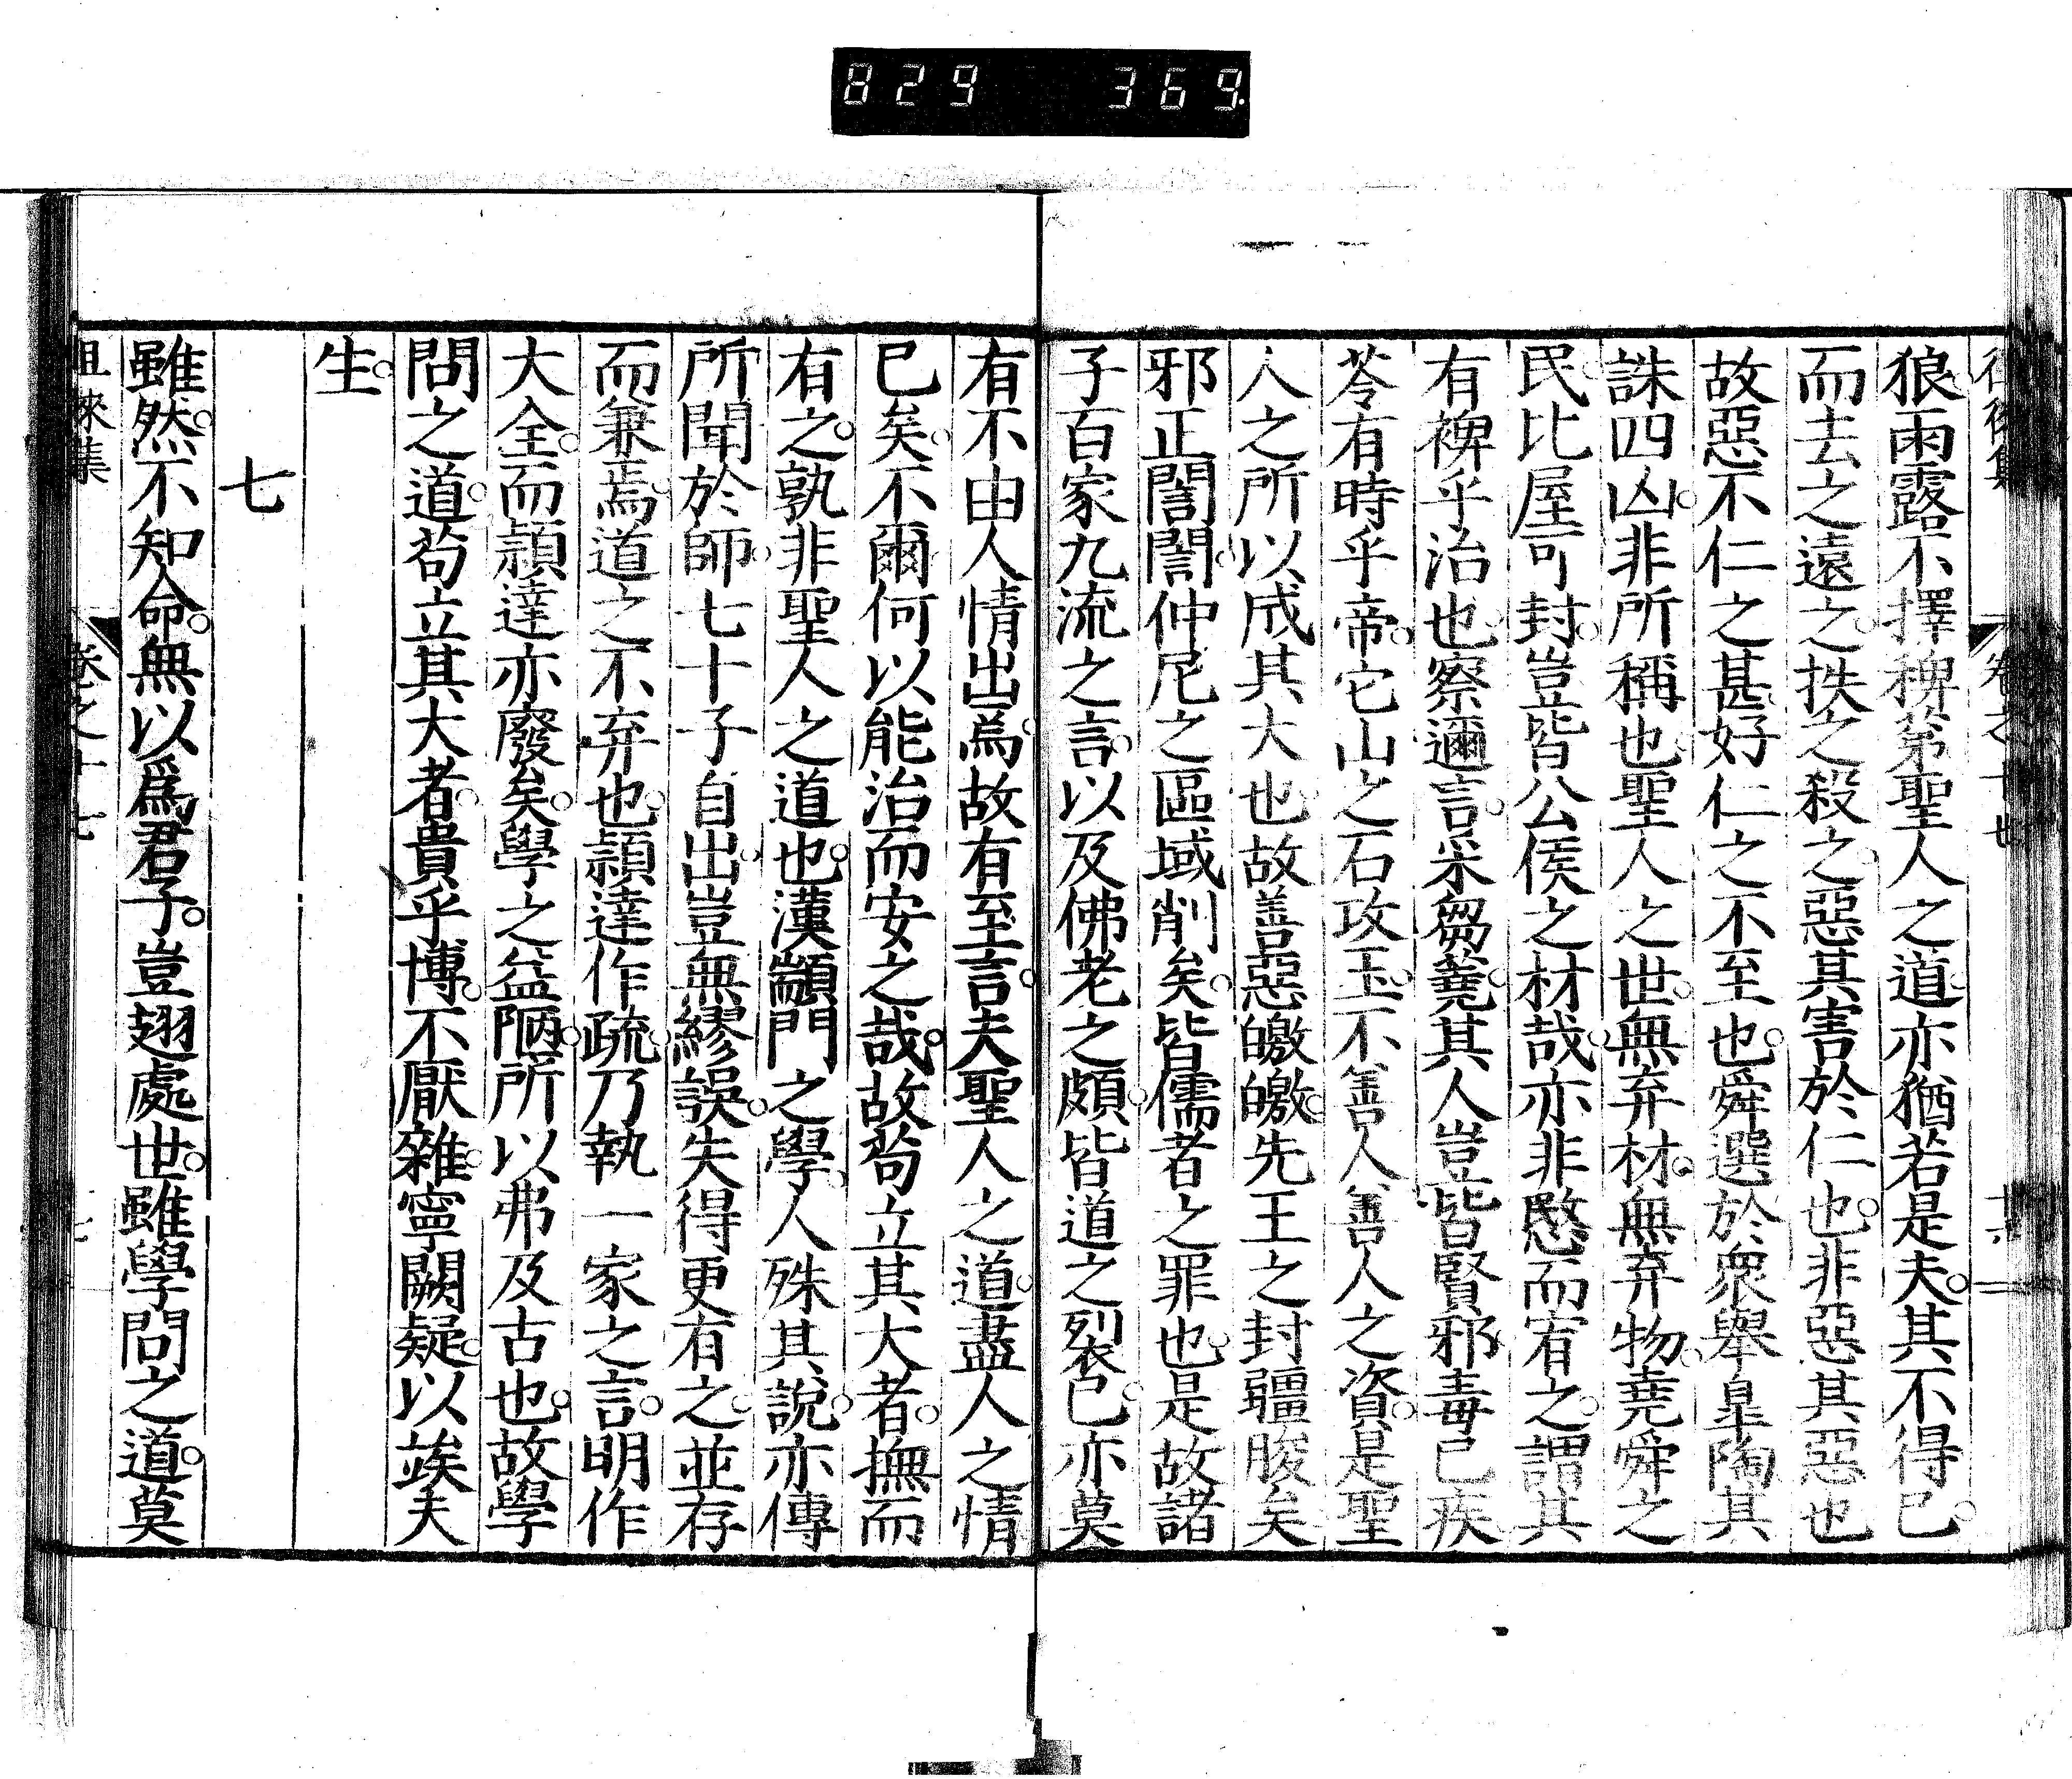 829 369
狼。雨露不擇稗苐。聖人之道。亦猶若是夫。其不得已。
而去之遠之。抶之殺之。惡其害於仁也。非惡其惡也。
故惡不仁之甚。好仁之不至也。舜選於衆。舉皐陶。其
誅四凶。非所稱也。聖人之世。無弃材。無弃物。堯舜之
民。比屋可封。豈皆公侯之材哉。亦非愍而宥之。謂其
有裨乎治也。察邇言。采芻蕘。其人豈皆賢邪。毒已疾。
苓有時乎帝。它山之石攻玉。不善人善人之資。是聖
人之所以成其大也。故善惡皦皦。先王之封疆朘矣。
邪正誾誾。仲尼之區域削矣。皆儒者之罪也。是故諸
子百家九流之言。以及佛老之頗。皆道之裂已。亦莫
有不由人情出焉。故有至言。夫聖人之道。盡人之情
已矣。不爾何以能治而安之哉。故苟立其大者。撫而
有之。孰非聖人之道也。漢顓門之學。人殊其說。亦傳
所聞於師。七十子自出。豈無繆誤。失得更有之。並存
而兼焉。道之不弃也。頴達作疏。乃執一家之言。明作
大全。而頴達亦廢矣。學之益陋。所以弗及古也。故學
問之道。苟立其大者。貴乎博。不厭雜。寧闕疑。以竢夫
生。
七
雖然。不知命。無以爲君子。豈翅處世。雖學問之道。莫
徂徠集 卷之十七